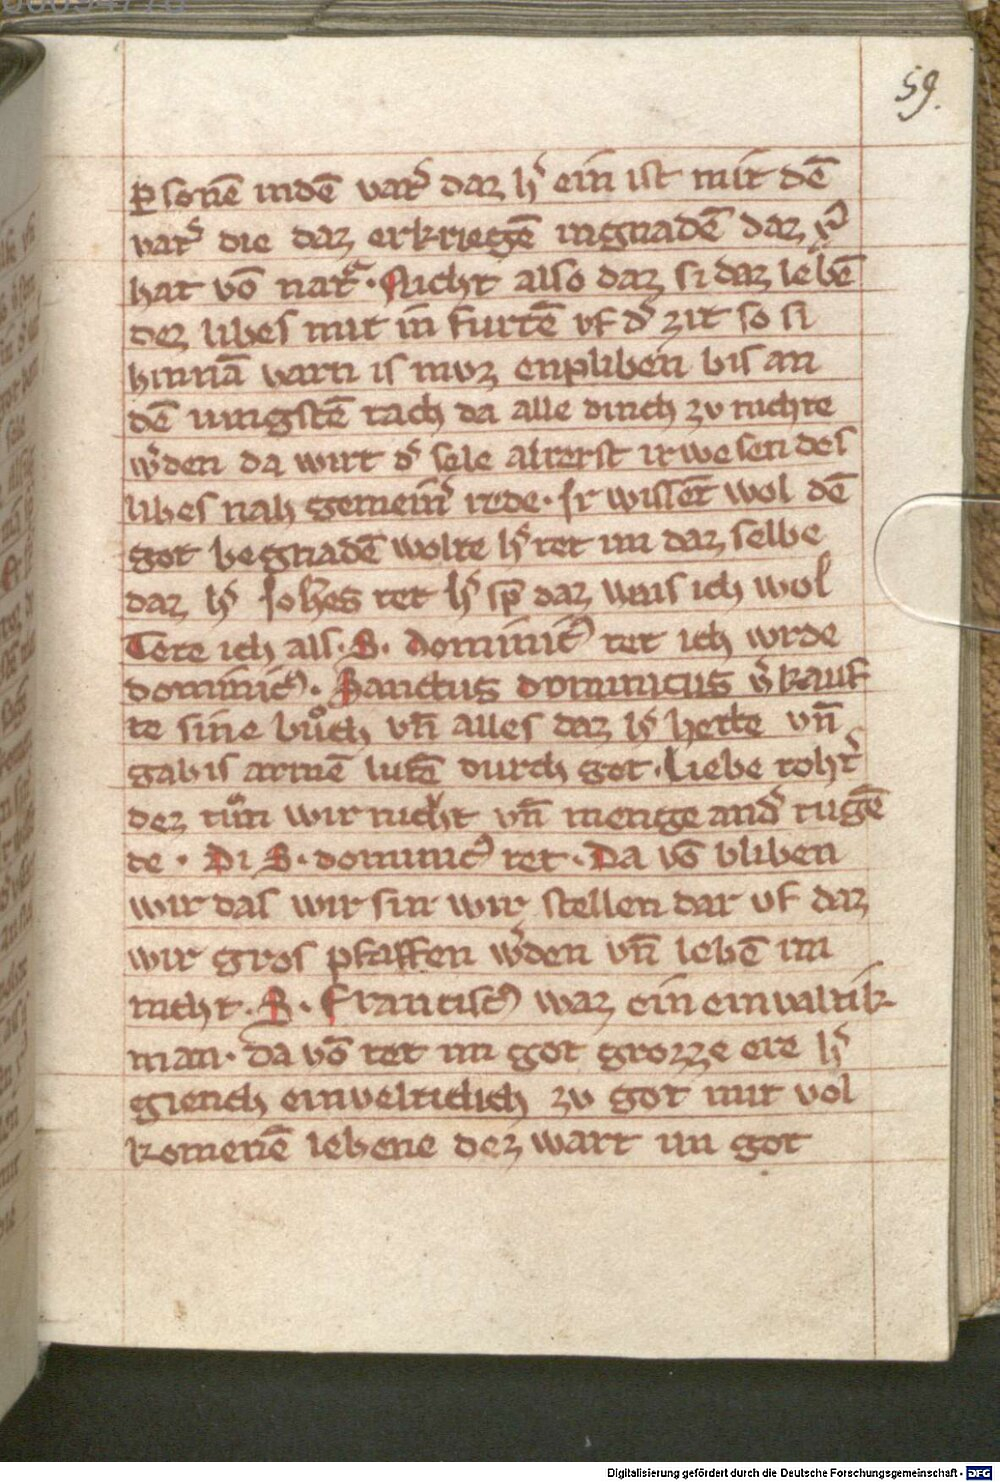 59.
ꝑsonē indē vatˢ daz hˢ ein ist mit dē
vatˢ die daz erkriegē ingnadē daz ˢ
hat vō natᵃ · Nicht also daz si daz lebē
dez libes mit in furtē vf dˢ zit so si
hinnā varn is mvz enpliben bis an
dē iungstē tach da alle dinch zv nichte
wˢden da wirt dˢ sele alrerst ir wesen des
libes nah gemeinˢ rede · Ir wissēt wol dē
got begnadē wolte hˢ tet im daz selbe
daz hˢ Iohēs tet hˢ sp̄ daz weis ich wol
Tete ich als · S · dominicꝰ tet ich wrde
dominicꝰ · Sanctus dominicus vˢkauf
te sine buͦch vn̄ alles daz hˢ hette vn̄
gab is armē lutē durch got · Liebe tohtˢ
dez tuͦn wir nicht vn̄ menge andˢ tugē
de · Di S · dominicꝰ tet · Da vō bliben
wir das wir sin wir stellen dar vf daz
wir gros pfaffen wˢden vn̄ lebē im
nicht · S · Franciscꝰ waz ein einvaltik
man · da vō tet im got grozze ere hˢ
giench einveltichlich zv got mit vol
komenē lebene dez wart im got
Digitalisierung gefördert durch die Deutsche Forschungsgemeinschaft - DFG